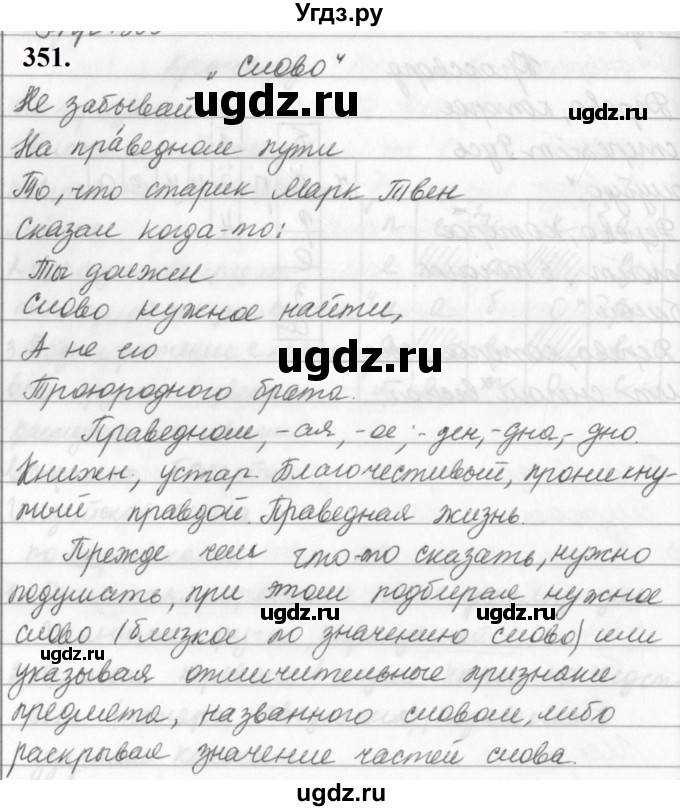 Угдз.ру
351.
„Слово“
Не забывай
ugdz.ru
На пра́ведном пути
То, что старик Марк Твен
Сказал когда-то:
Ты должен
Слово нужное найти,
А не его
ugdz.ru
Троюродного брата.
Праведном, -ая, -ое; -ден, -дна, -дно.
Книжн, устар. Благочестивый, проникну-
тый правдой. Праведная жизнь.
Прежде чем что-то сказать, нужно
подумать, при этом подбирая нужное
ugdz.ru
ugdz.ru
слово (близкое по значению слово) или
ugdz.ru
указывая отличительные признаки
предмета, названного словом, либо
раскрывая значение частей слова.
ugdz.ru